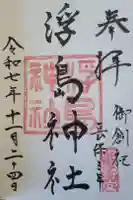 奉拝
御創祀
浮島神社
浮島神社
令和七年十一月二十四日